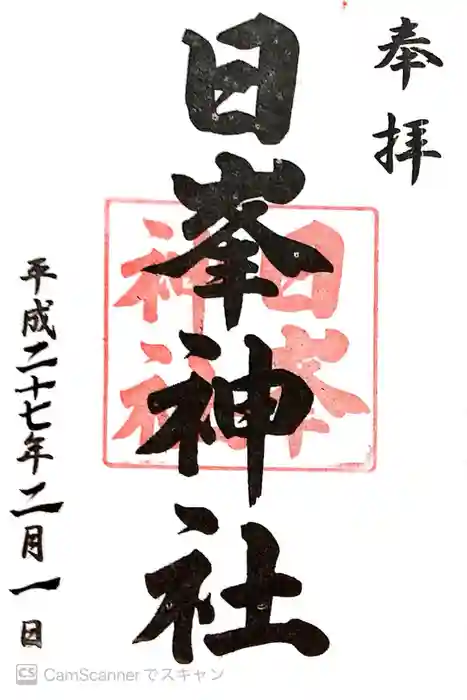 奉拝
日峯神社
日峯
神社
平成二十七年二月一日
CS CamScannerでスキャン